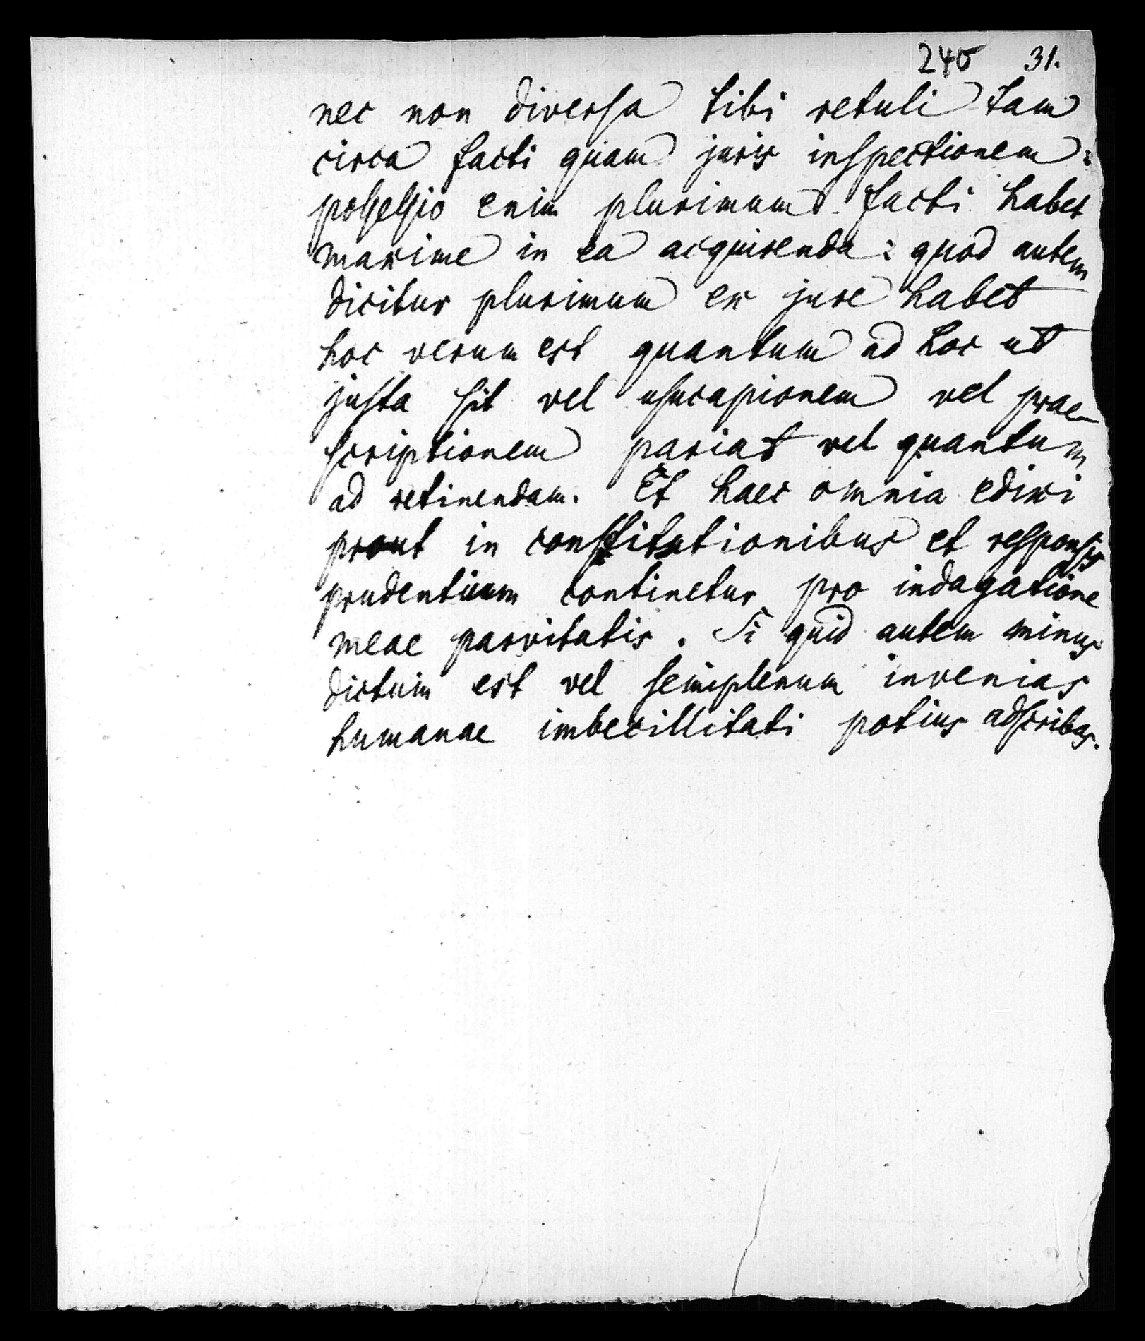 240 31.
nec non diversa tibi retuli tam
circa facti quam juris inspectionem:
possessio enim plurimum facti habet
maxime in ea acquirenda: quod autem
dicitur plurimum ex jure habet
hoc verum est quantum ad hoc ut
justa sit vel usucapionem vel prae
scriptionem pariat vel quantum
ad retinendam. Et haec omnia edixi
prout in constitutionibus et responsis
prudentium continetur pro indagatione
meae parvitatis. Si quid autem minus
dictum est vel semiplenum invenias
humanae imbecillitati potius adscribas.